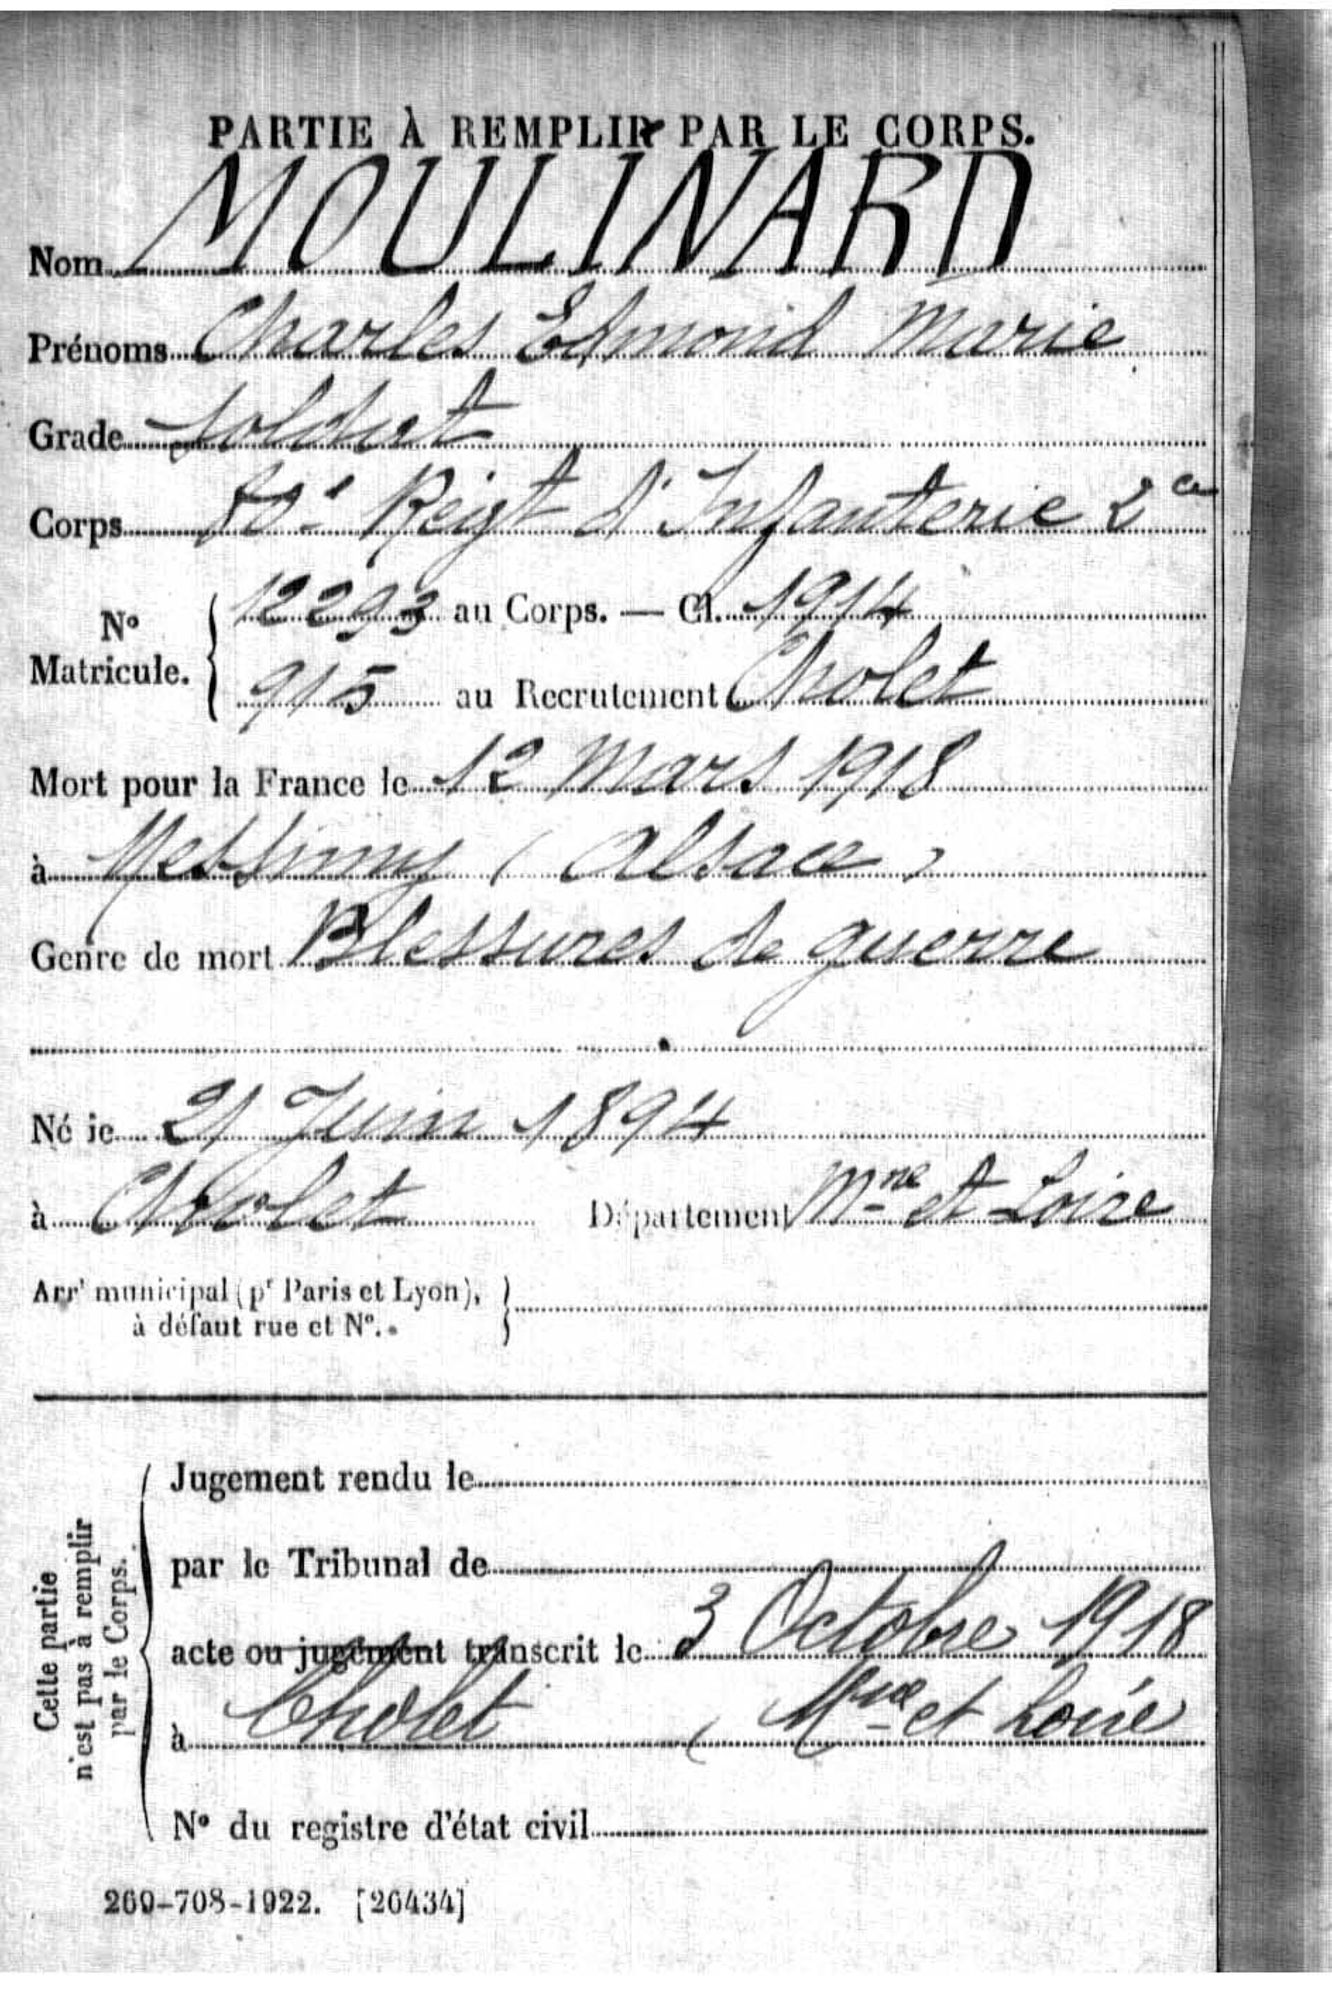 PARTIE À REMPLIR PAR LE CORPS.
Nom MOULINARD
Prénoms Charles Edmond Marie
Grade soldat
Corps Reigt d'Infanterie 2 ce
No Matricule. 12293 au Corps. — Cl. 1914
915 au Recrutement Cholet
Mort pour la France le 12 Mars 1918
à Messimy (Alsace)
Genre de mort Blessures de guerre
Né le 21 Juin 1894
à Cholet Département Mne et Loire
Arrt municipal (pr Paris et Lyon),
à défaut rue et No.
Cette partie
n'est pas à remplir
par le Corps.
Jugement rendu le
par le Tribunal de
acte ou jugement transcrit le 3 Octobre 1918
à Cholet (Mne et Loire
No du registre d'état civil
269-708-1922. [26434]